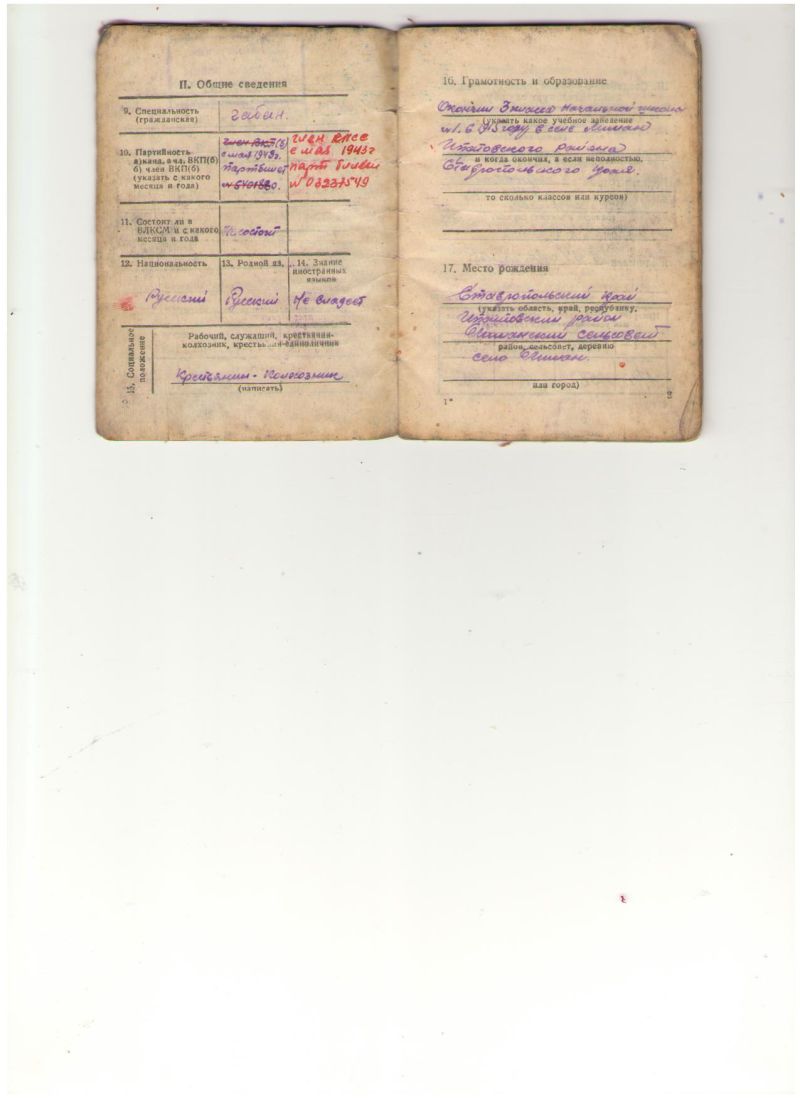 II. Общие сведения
9. Специальность
(гражданская)
чабан.
10. Партийность
в/канд. в чл. ВКП(б)
б) член ВКП(б)
(указать с какого
месяца и года)
член ВКП(б)
с мая 1943г.
партбилет
член КПСС
с мая 1943г
парт билет
№ 03237549
11. Состоит ли в
ВЛКСМ и с какого
месяца и года
Не состоит
12. Национальность
Русский
13. Родной яз.
Русский
14. Знание
иностранных
языков
Не владеет
15. Социальное
положение
Рабочий, служащий, крестьянин-
колхозник, крестьянин-единоличник
Крестьянин-Колхозник
(написать)
16. Грамотность и образование
Окончил 3 класса начальной школы
(указать какое учебное заведение
году в селе Лиман
Ипатовского района
и когда окончил, а если неполностью,
Ставропольского края.
то сколько классов или курсов)
17. Место рождения
Ставропольский край
(указать область, край, республику,
Ипатовский район
Лиманский сельсовет
район, сельсовет, деревню
село Лиман.
или город)
1*
3